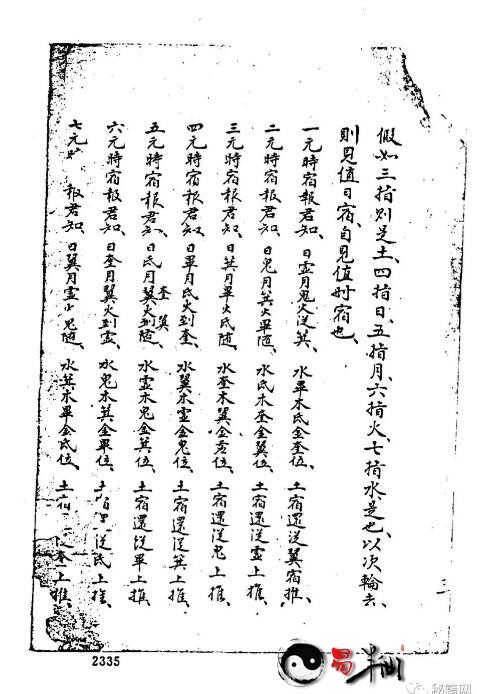 假如三指則是土、四指日、五指月、六指火、七指水是也、以次輪去、
則見值日宿、自見值时宿也、
一元時宿報君知、日虚月鬼火從箕、水畢木氐金奎位、土宿還從翼宿推、
二元時宿報君知、日鬼月箕火畢随、水氐木奎金翼位、土宿還從虚上推、
三元時宿報君知、日箕月畢火氐随、水奎木翼金虚位、土宿還從鬼上推、
四元時宿報君知、日畢月氐火到奎、水翼木虚金鬼位、土宿還從箕上推、
五元時宿報君知、日氐月翼火到随、水虚木鬼金箕位、土宿還從畢上推、
奎翼
六元時宿報君知、日奎月翼火到虚、水鬼木箕金畢位、土從氐上推、
七元時報君知、日翼月虚火鬼随、水箕木畢金氐位、土奎上推、
三
2335
易半仙
秘籍网